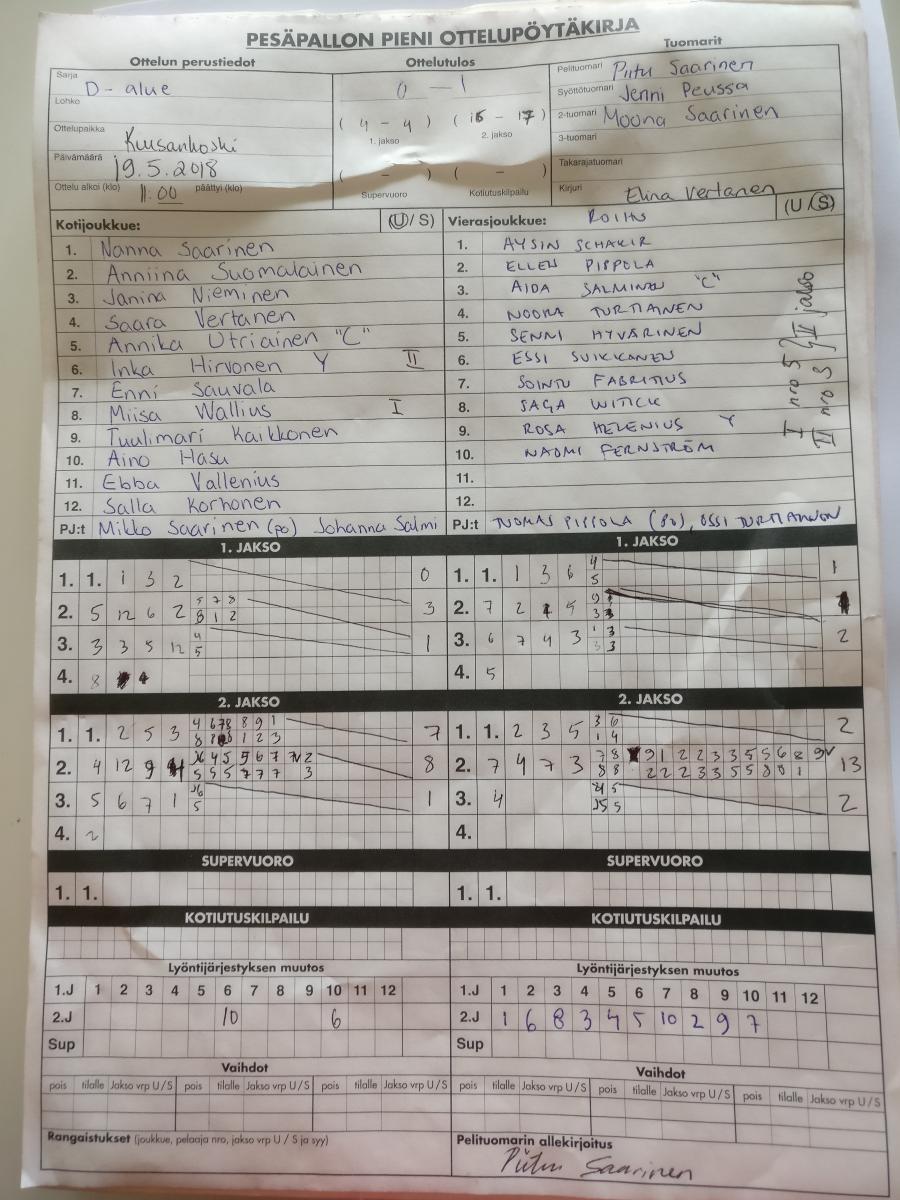 PESÄPALLON PIENI OTTELUPÖYTÄKIRJA
Ottelun perustiedot
Sarja D-alue
Lohko
Ottelupaikka Kuusankoski
Päivämäärä 19.5.2018
Ottelu alkoi (klo) 11.00 päättyi (klo)
Ottelutulos
0 - 1
(4 - 4) (16 - 17)
1. jakso 2. jakso
( - ) ( - )
Supervuoro Kotiutuskilpailu
Tuomarit
Pelituomari Piitu Saarinen
Syöttötuomari Jenni Peussa
2-tuomari Moona Saarinen
3-tuomari
Takarajatuomari
Kirjuri Elina Vertanen
Kotijoukkue: (U/S)
1. Nanna Saarinen
2. Anniina Suomalainen
3. Janina Nieminen
4. Saara Vertanen
5. Annika Utriainen "C"
6. Inka Hirvonen Y II
7. Enni Sauvala
8. Miisa Wallius I
9. Tuulimari Kaikkonen
10. Aino Hasu
11. Ebba Vallenius
12. Salla Korhonen
PJ:t Mikko Saarinen (po) Johanna Salmi
Vierasjoukkue: ROIHU (U/S)
1. AYSIN SCHAKIR
2. ELLEN PIPPOLA
3. AIDA SALMINEN "C"
4. NOORA TURTIAINEN
5. SENNI HYVÄRINEN
6. ESSI SUIKKANEN
7. SOINTU FABRITIUS
8. SAGA WITICK
9. ROSA HELENIUS Y
10. NAOMI FERNSTRÖM
11.
12.
PJ:t TUOMAS PIPPOLA (PO), OSSI TURTIAINEN
I nro 5
II nro 3
II jakso
1. JAKSO
1. 1. 1 3 2 0
2. 5 12 6 2 5 7 8 3
8 1 2
3. 3 3 5 12 4 1
5
4. 8
1. JAKSO
1. 1. 1 3 6 4 1
5
2. 7 2 5
3. 6 7 4 3 2
4. 5
2. JAKSO
1. 1. 2 5 3 7
2. 4 12 9 8
3. 5 6 7 1 1
5
4. 2
2. JAKSO
1. 1. 2 3 5 3 6 2
1 4
2. 7 4 7 3 7 8 9 1 2 2 3 3 5 5 6 8 9 13
8 8 2 2 2 3 3 5 5 8 1
3. 4 2
4.
SUPERVUORO
1. 1.
SUPERVUORO
1. 1.
KOTIUTUSKILPAILU
KOTIUTUSKILPAILU
Lyöntijärjestyksen muutos
1.J 1 2 3 4 5 6 7 8 9 10 11 12
2.J 10 6
Sup
Lyöntijärjestyksen muutos
1.J 1 2 3 4 5 6 7 8 9 10 11 12
2.J 1 6 8 3 4 5 10 2 9 7
Sup
Vaihdot
pois tilalle Jakso vrp U/S pois tilalle Jakso vrp U/S pois tilalle Jakso vrp U/S
Vaihdot
pois tilalle Jakso vrp U/S pois tilalle Jakso vrp U/S pois tilalle Jakso vrp U/S
Rangaistukset (joukkue, pelaaja nro, jakso vrp U / S ja syy)
Pelituomarin allekirjoitus
Piitu Saarinen